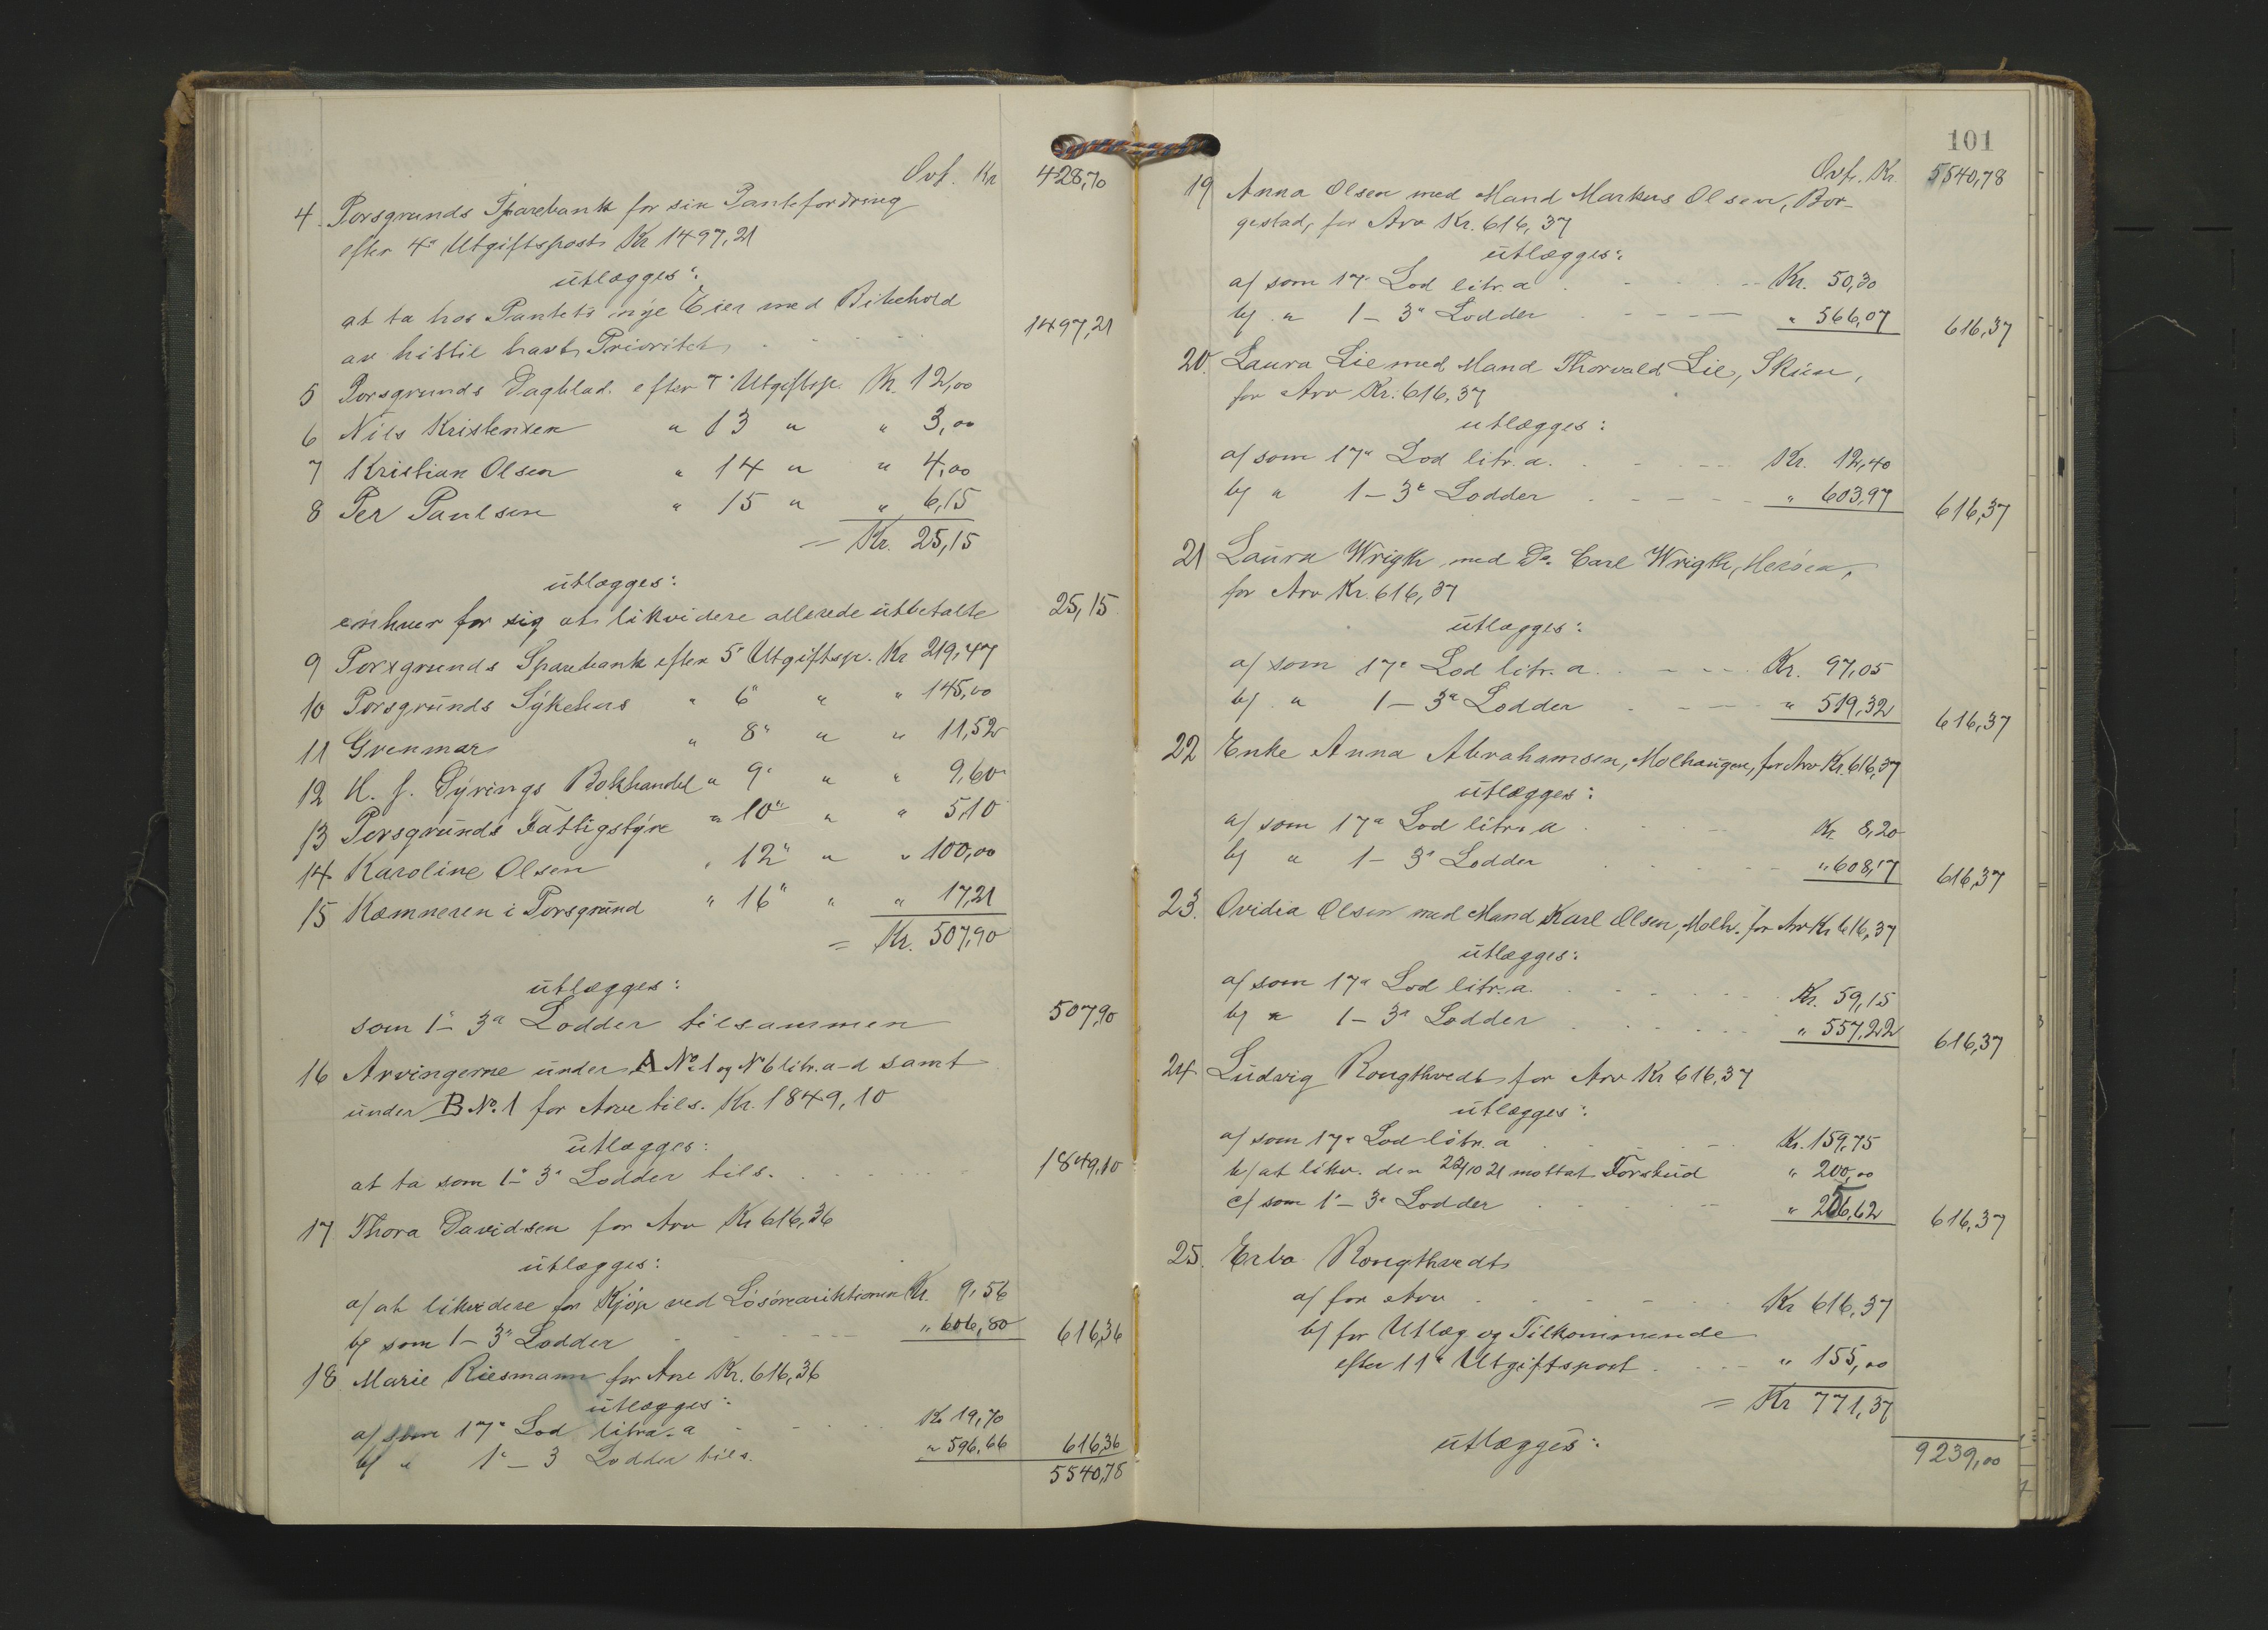 Ovf. Kr 428,70
4. Porsgrunds Sparebank for sin Pantefordring
efter 4" Utgiftspost Kr 1497,21
utlægges:
at ta hos Pantets nye Eier med Bibehold
av hittil havt Prioritet . . . . . 1497,21
5 Porsgrunds Dagblad. efter 7" Utgiftsp. Kr. 12,00
6 Nils Kristensen " 13 " " 3,00
7 Kristian Olsen " 14 " " 4,00
8 Per Paulsen " 15 " " 6,15
= Kr. 25,15
utlægges:
enhver for sig at likvidere allerede utbetalte 25,15
9 Porsgrunds Sparebank efter 5" Utgiftsp. Kr 219,47
10 Porsgrunds Sykehus " 6" " " 145,00
11 Grenmar " 8" " " 11,52
12 H. J. Dyrings Bokhandel " 9" " " 9,60
13 Porsgrunds Fattigstyre " 10" " " 5,10
14 Karoline Olsen " 12" " " 100,00
15 Kæmneren i Porsgrund " 16" " " 17,21
= Kr. 507,90
utlægges:
som 1"- 3" Lodder tilsammen 507,90
16 Arvingerne under A No. 1 og No 6 litr. a-d samt
under B No. 1 for Arv tils. Kr. 1849,10
utlægges:
at ta som 1"- 3" Lodder tils. . . . . . 1849,10
17 Thora Davidsen for Arv Kr 616,36
utlægges:
a/ at likvidere for Kjøp ved Løsøreauktionen Kr. 9,56
b/ som 1 - 3" Lodder - - - - - " 606,80 616,36
18 Marie Riesmann for Arv Kr. 616,36
utlægges:
a/ som 17" Lod litra. a - - - - Kr 19,70
b/ " 1" - 3 Lodder tils. " 596,66 616,36
5540,78
101
Ovf. Kr. 5540,78
19 Anna Olsen med Mand Markus Olsen, Bor-
gestad, for Arv Kr. 616,37
utlægges:
a/ som 17" Lod litr. a . - - - - Kr. 50,30
b/ " 1 - 3" Lodder - - - - " 566,07 616,37
20. Laura Lie med Mand Thorvald Lie, Skien,
for Arv Kr. 616,37
utlægges:
a/ som 17" Lod litr. a. . - - - Kr. 12,40
b/ " 1 - 3" Lodder - - - - " 603,97 616,37
21 Laura Wrigth med Do. Carl Wrigth, Herøen,
for Arv Kr. 616,37
utlægges:
a/ som 17" Lod litr. a. . - - - Kr. 97,05
b/ " 1 - 3" Lodder - - - - " 519,32 616,37
22 Enke Anna Abrahamsen, Molhaugen, for Arv Kr. 616,37
utlægges:
a/ som 17" Lod litra a . - - - Kr 8,20
b/ " 1 - 3" Lodder . . . . . " 608,17 616,37
23. Ovidia Olsen med Mand Karl Olsen, Molh. for Arv Kr 616,37
utlægges:
a/ som 17" Lod litr. a. . . . . . Kr. 59,15
b/ " 1 - 3" Lodder . . . . . " 557,22 616,37
24 Ludvig Rongthvedt for Arv Kr 616,37
utlægges:
a/ som 17" Lod litr. a . . . . - Kr. 159,75
b/ at likv. den 22/10 21 mottat Forskud " 200,00
c/ som 1" - 3" Lodder . . . . - " 256,62 616,37
25. Erbo Rongthvedt
a/ for Arv . . . . . . Kr 616,37
b/ for Utlæg og Tilkommende
efter 11" Utgiftspost . . . - " 155,00
= Kr 771,37
utlægges:
9239,00